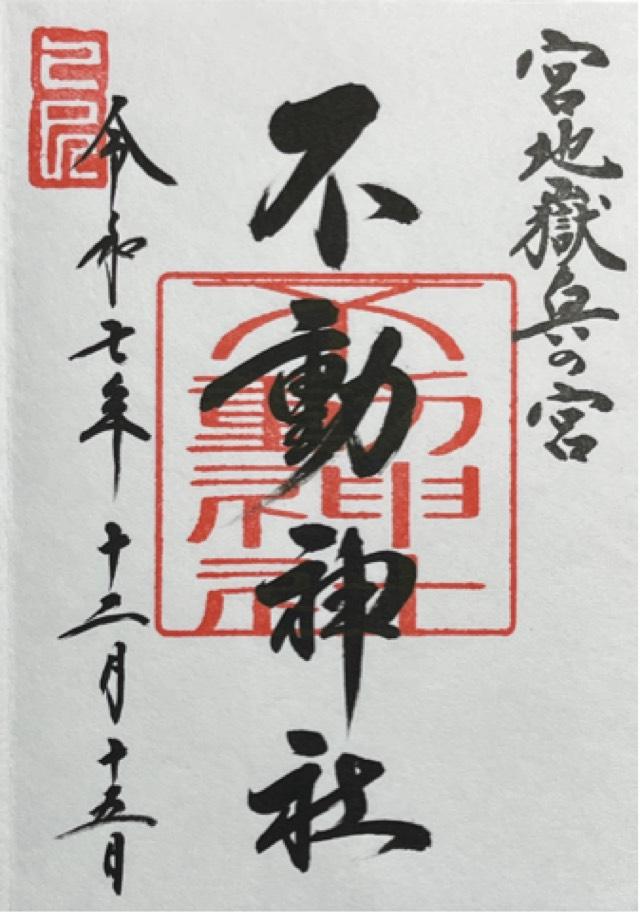 宮地嶽奥の宮
不動神社
令和七年十二月十五日
不動神社